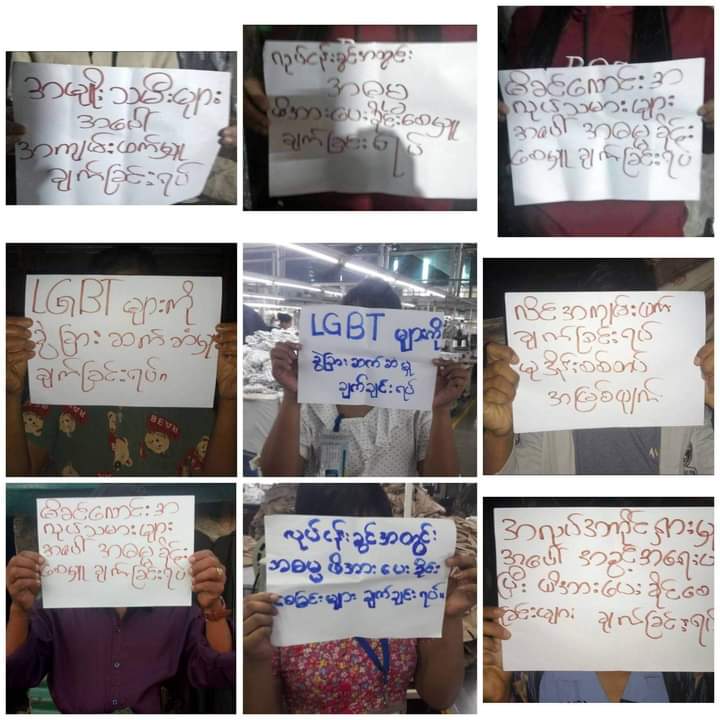 အမျိုးသမီးများ
အပေါ်
အကျမ်းဖက်မှု
ချက်ခြင်းရပ်
လုပ်ငန်းခွင်အတွင်း
အဓမ္မ
ဖိအားပေးခိုင်းစေမှု
ချက်ခြင်းရပ်
မိခင်လောင်းအ
လုပ်သမားများ
အပေါ် အဓမ္မခိုင်း
စေမှုချက်ခြင်းရပ်
LGBT များကို
ခွဲခြားဆက်ဆံမှု
ချက်ခြင်းရပ်။
LGBT များကို
ခွဲခြားဆက်ဆံမှု
ချက်ချင်းရပ်
လိင်အကျမ်းဖက်
ချက်ခြင်းရပ်
မုဒိန်းစစ်တပ်
အမြစ်ဖြုတ်
မိခင်လောင်းအ
လုပ်သမားများ
အပေါ် အဓမ္မခိုင်း
စေမှုချက်ခြင်းရပ်
လုပ်ငန်းခွင်အတွင်း
အဓမ္မဖိအားပေးခိုင်း
စေခြင်းများ ချက်ချင်းရပ်။
အလုပ်အကိုင်ရှားမှ
အပေါ် အခွင့်အရေးယ
ပြီး ဖိအားပေးခိုင်စေ
ခြင်းများ ချက်ခြင်းရပ်